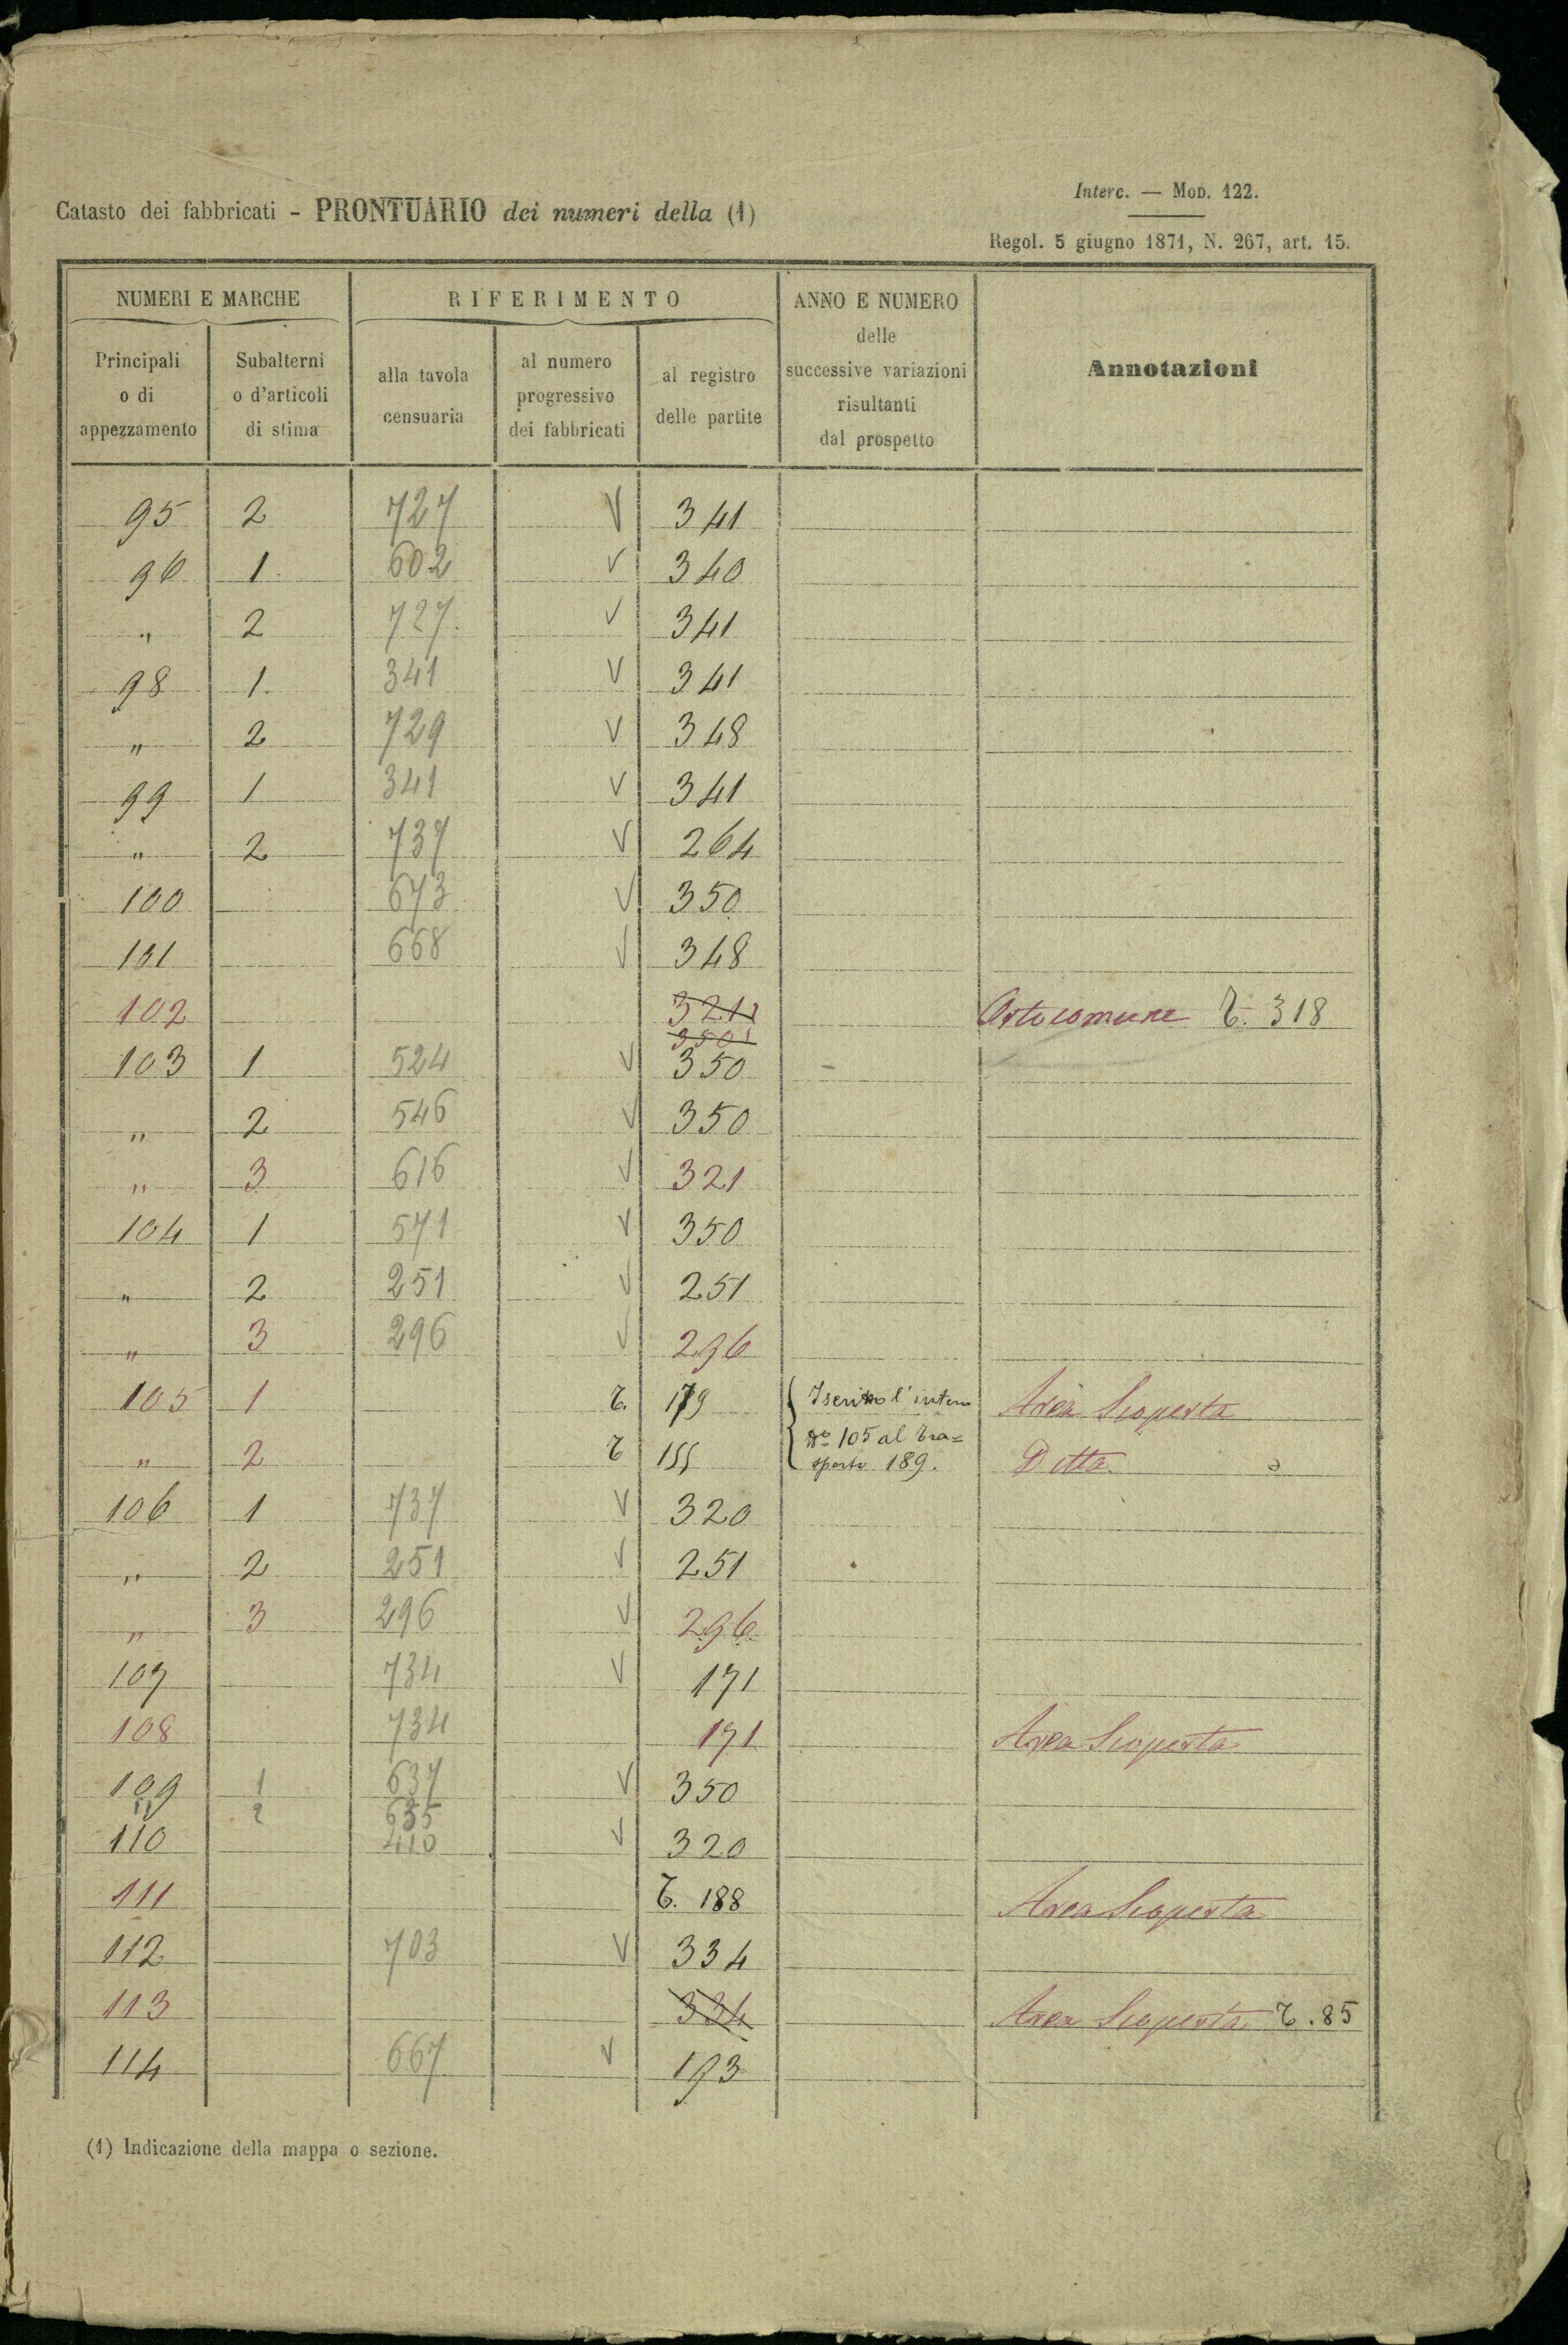 Interc. — Mod. 122.
Catasto dei fabbricati - PRONTUARIO dei numeri della (1)
Regol. 5 giugno 1871, N. 267, art. 15.
NUMERI E MARCHE RIFERIMENTO ANNO E NUMERO delle successive variazioni risultanti dal prospetto Annotazioni
Principali o di appezzamento Subalterni o d'articoli di stima alla tavola censuaria al numero progressivo dei fabbricati al registro delle partite
95 2 727 V 341
96 1 602 V 340
" 2 727 V 341
98 1 341 V 341
" 2 729 V 348
99 1 341 V 341
" 2 737 V 264
100 673 V 350
101 668 V 348
102 321 Orto comune T. 318
350
103 1 524 V 350
" 2 546 V 350
" 3 616 V 321
104 1 571 V 350
" 2 251 V 251
" 3 296 V 296
105 1 T. 179 Iscritto l'intero Area Scoperta
" 2 T 155 No 105 al Tra= Detta
sporto 189.
106 1 737 V 320
" 2 251 V 251
" 3 296 V 296
107 734 V 171
108 734 171 Area Scoperta
109 1 637 V 350
" 2 635
110 410 V 320
111 T. 188 Area Scoperta
112 703 V 334
113 334 Area Scoperta T. 85
114 667 V 193
(1) Indicazione della mappa o sezione.